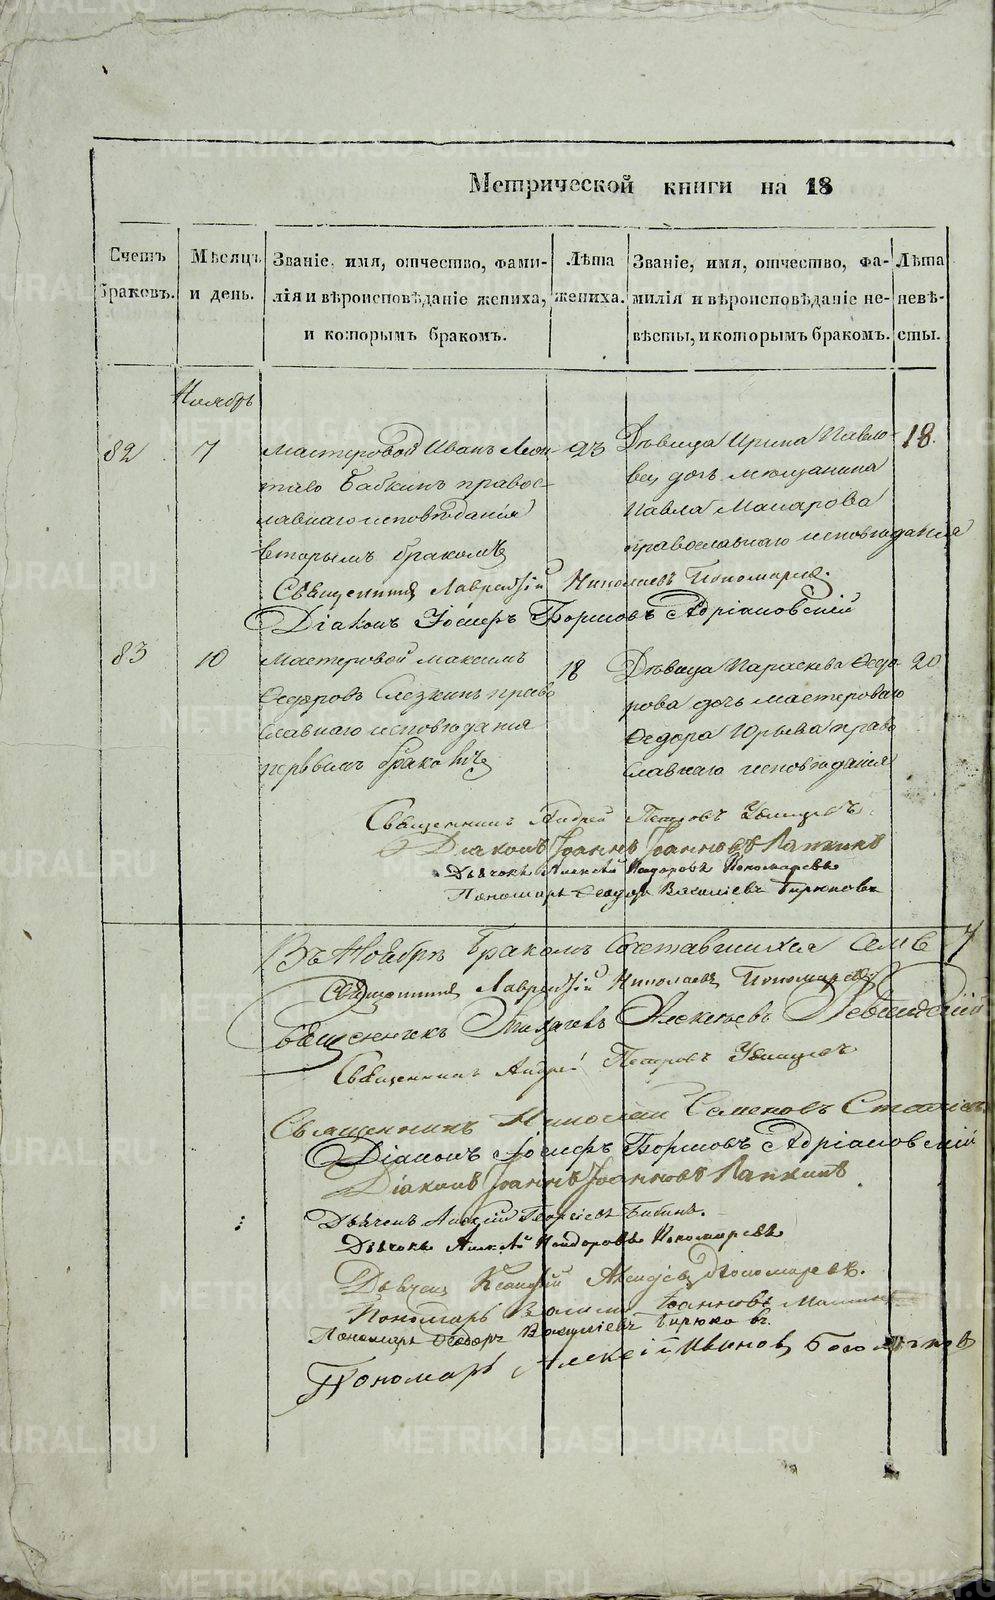 METRIKI.GASO-URAL.RU
Метрической книги на 18
Счетъ браковъ.
Мѣсяцъ и день.
Званіе, имя, отчество, фами-
лія и вѣроисповѣданіе жениха,
и которымъ бракомъ.
Лѣта
жениха.
Званіе, имя, отчество, фа-
милія и вѣроисповѣданіе не-
вѣсты, и которымъ бракомъ.
Лѣта
невѣ-
сты.
Ноябрь
82
7
Мастеровой Иванъ Леон-
Бабкинъ правос-
лавнаго исповѣданія
вторымъ бракомъ
23
Дѣвица Ирина Павло-
дочь мещанина
Павла Макарова
православнаго исповѣданія
18.
Священникъ Лаврентій Николаевъ Пономаревъ.
Діаконъ Іосифъ Борисовъ Адріановскій
83
10
Мастеровой Максимъ
Ѳедоровъ Слезкинъ право
славнаго исповѣданія
первымъ бракомъ
18
Дѣвица Параскева Ѳедо-
рова дочь мастероваго
Ѳедора Юрьева право
славнаго исповѣданія
20
Священникъ Андрей Петровъ Удинцевъ.
Діаконъ Іоаннъ Іоанновъ Лапкинъ
Дьячокъ Алексѣй Пономаревъ
Пономарь Ѳеодоръ Василіевъ Бирюковъ
Въ Ноябрѣ бракомъ сочетавшихся семь 7
Священникъ Лаврентій Николаевъ Пономаревъ
Священникъ Алексѣевъ Левицкій
Священникъ Андрей Петровъ Удинцевъ
Священникъ Николай Семеновъ
Діаконъ Іосифъ Борисовъ Адріановскій
Діаконъ Іоаннъ Іоанновъ Лапкинъ
Дьячекъ Алексій Георгіевъ
Дьячокъ Алексѣй Пономаревъ
Пономаревъ.
Пономарь Іоанновъ
Пономарь Ѳеодоръ Василіевъ Бирюковъ.
Пономарь Алексѣй Ивановъ